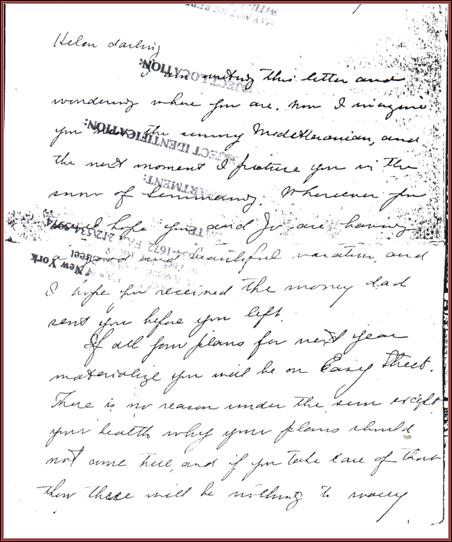 Helen darling
I am writing this letter and
wondering where you are. Now I imagine
you the sunny Mediterranian, and
the next moment I picture you in the
snow of Germany. Wherever you
I hope you and Jo are having
a most beautiful vacation, and
I hope you received the money dad
sent you before you left.
If all your plans for next year
materialize you will be on Easy Street.
There is no reason under the sun except
your health why your plans should
not come true, and if you take care of that
then there will be nothing to worry
JECT LOCATION:
JECT IDENTIFICATION:
PARTMENT:
New York